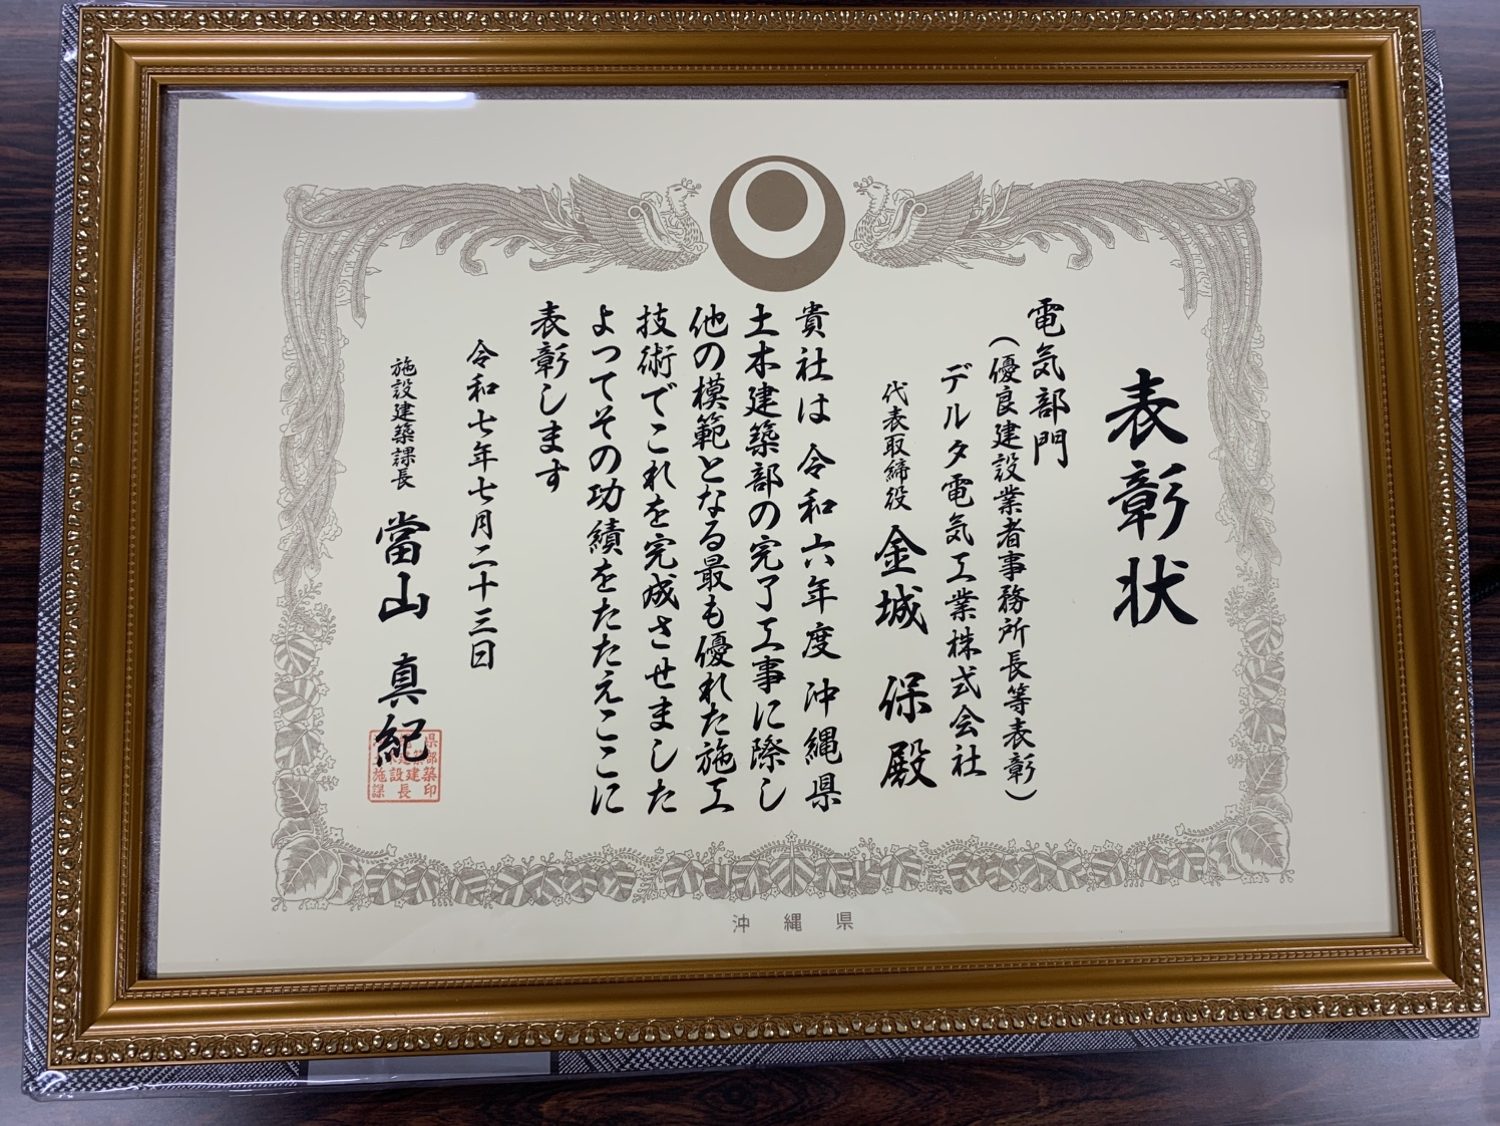 表彰状
電気部門
(優良建設業者事務所長等表彰)
デルタ電気工業株式会社
代表取締役 金城 保 殿
貴社は令和六年度沖縄県
土木建築部の完了工事に際し
他の模範となる最も優れた施工
技術でこれを完成させました
よってその功績をたたえここに
表彰します
令和七年七月二十三日
施設建築課長 當山 真紀
沖縄県